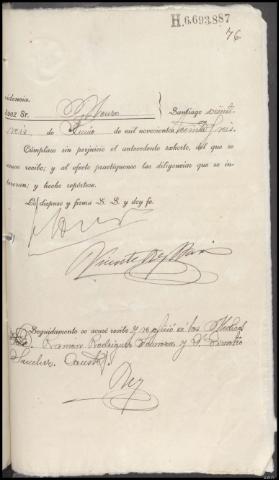 H.6.693.887
76
idencia.
Juez Sr. Santiago veinti-
seis de Junio de mil novecientos treinta y seis.
Cúmplase sin perjuicio el antecedente exhorto, del que se
acuse recibo; y al efecto practíquense las diligencias que se in-
teresan; y hecho repórtese.
Lo dispuso y firma S. S. y doy fe.
Vicente Rey
Seguidamente se acusó recibo y se ofició a los Médicos
D. Ramon Rodriguez y D.
Rey